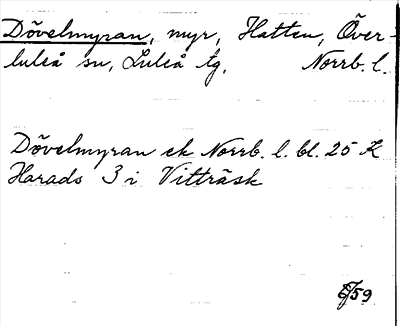 Dövelmyran, myr, Hatten, Över-
luleå sn, Luleå tg, Norrb. l.
Dövelmyran ek Norrb. l. bl. 25 K
Harads 3 i Vitträsk
59